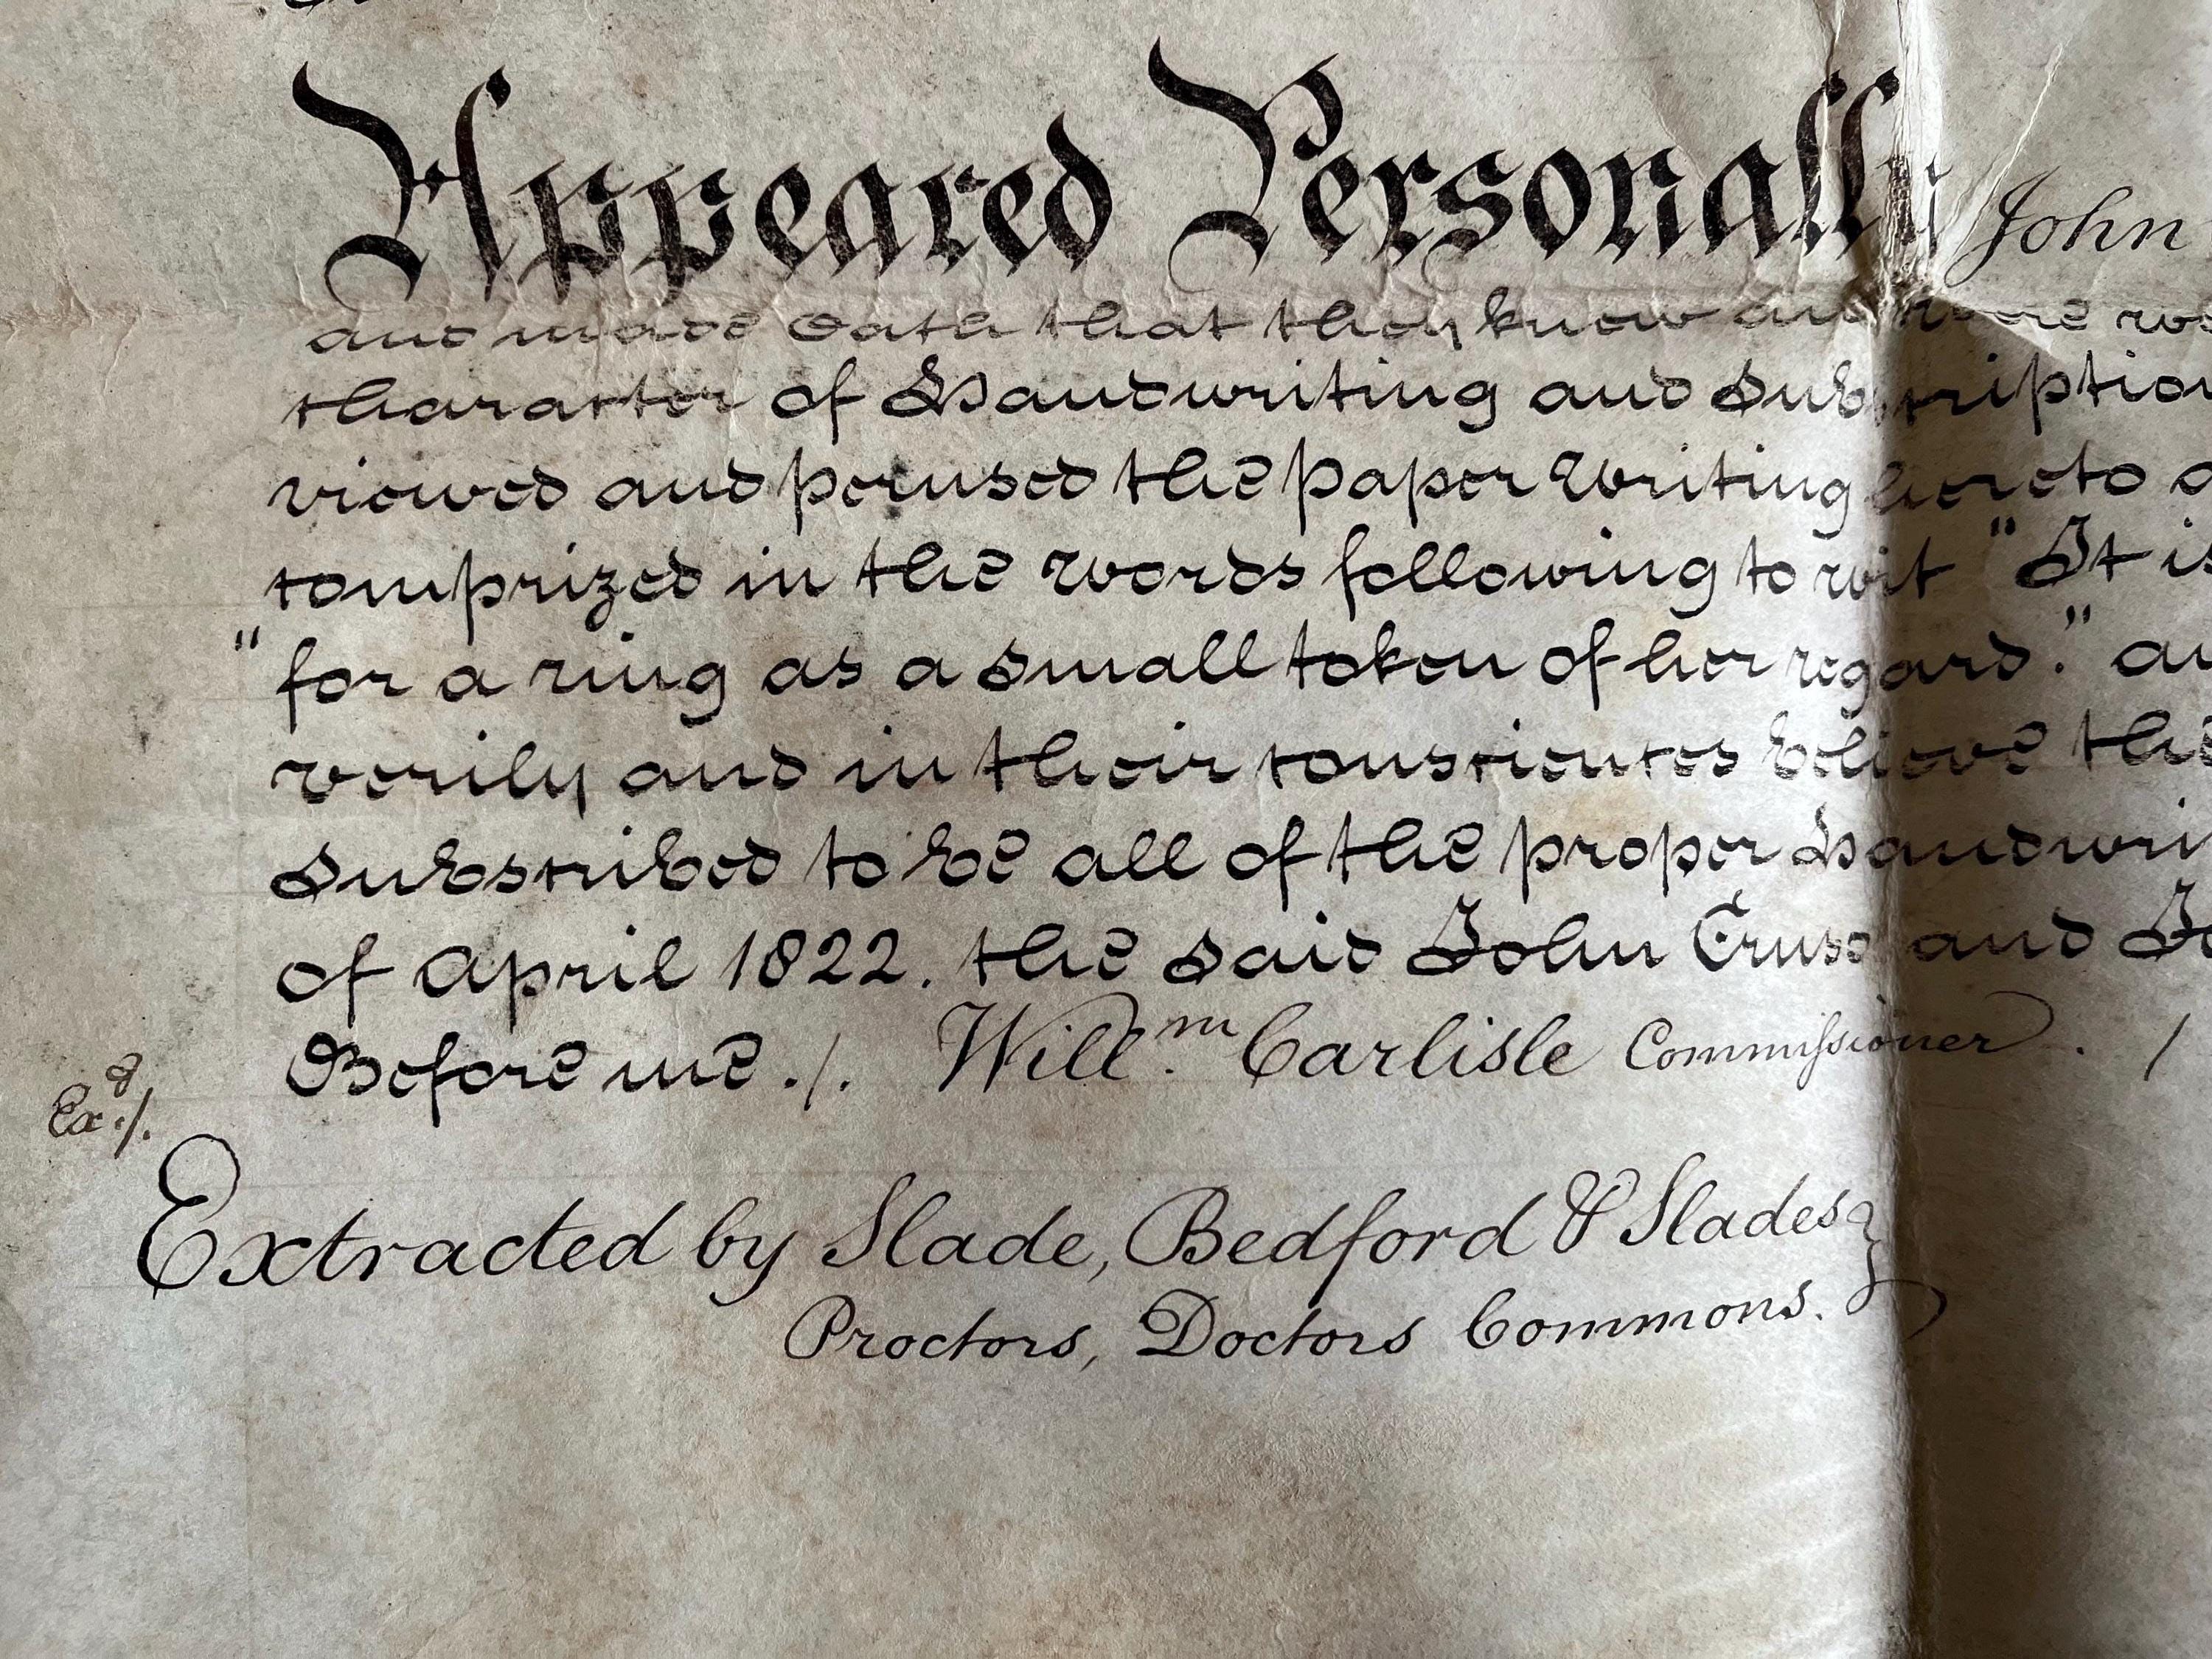 Appeared Personally John
and made Oath that they knew and were
character of Handwriting and Subscription
viewed and perused the paper Writing hereto
comprized in the words following to wit "It is
"for a ring as a small token of her regard."
verily and in their consciences believe the
Subscribed to be all of the proper Handwri
of April 1822. the said John Cruso and
Before me ./. Will.m Carlisle Commissioner . /
Ex.d/.
Extracted by Slade, Bedford & Slades
Proctors, Doctors Commons.